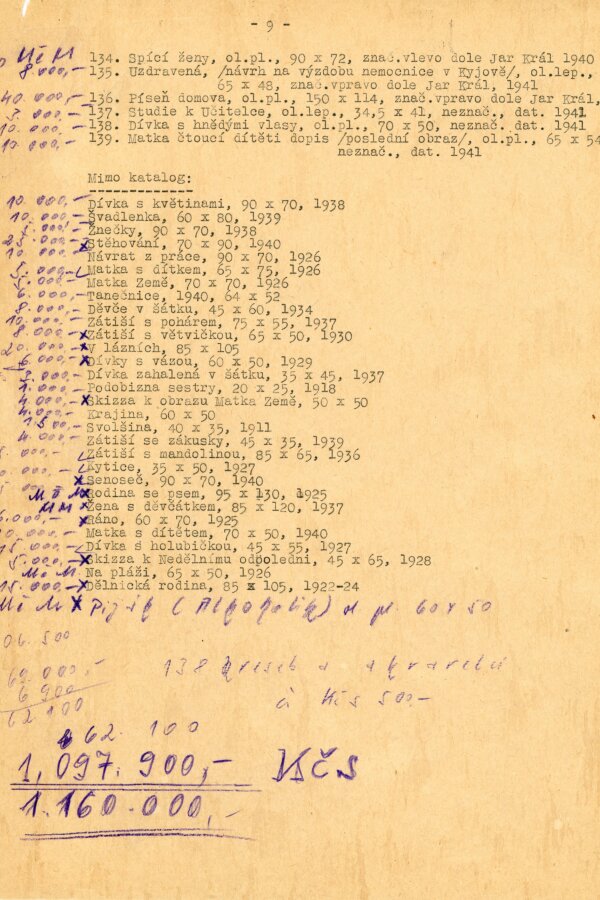 - 9 -
134. Spící ženy, ol.pl., 90 x 72, znač.vlevo dole Jar Král 1940
8 000,- 135. Uzdravená, /návrh na výzdobu nemocnice v Kyjově/, ol.lep.,
65 x 48, znač.vpravo dole Jar Král, 1941
40 000,- 136. Píseň domova, ol.pl., 150 x 114, znač.vpravo dole Jar Král,
137. Studie k Učitelce, ol.lep., 34,5 x 41, neznač., dat. 1941
10 000,- 138. Dívka s hnědými vlasy, ol.pl., 70 x 50, neznač., dat. 1941
10 000,- 139. Matka čtoucí dítěti dopis /poslední obraz/, ol.pl., 65 x 54
neznač., dat. 1941
Mimo katalog:
10 000,- Dívka s květinami, 90 x 70, 1938
10 000,- Švadlenka, 60 x 80, 1939
Žnečky, 90 x 70, 1938
x Stěhování, 70 x 90, 1940
10 000,- Návrat z práce, 90 x 70, 1926
5 000,- Matka s dítkem, 65 x 75, 1926
5 000,- Matka Země, 70 x 70, 1926
6 000,- Tanečnice, 1940, 64 x 52
8 000,- Děvče v šátku, 45 x 60, 1934
10 000,- Zátiší s pohárem, 75 x 55, 1937
8 000,- x Zátiší s větvičkou, 65 x 50, 1930
20 000,- x V lázních, 85 x 105
6 000,- x Dívky s vázou, 60 x 50, 1929
Dívka zahalená v šátku, 35 x 45, 1937
1 000,- Podobizna sestry, 20 x 25, 1918
4 000,- x Skizza k obrazu Matka Země, 50 x 50
4 000,- Krajina, 60 x 50
1 500,- Svolšina, 40 x 35, 1911
4 000,- Zátiší se zákusky, 45 x 35, 1939
Zátiší s mandolinou, 85 x 65, 1936
Kytice, 35 x 50, 1927
x Senoseč, 90 x 70, 1940
x Rodina se psem, 95 x 130, 1925
x Žena s děvčátkem, 85 x 120, 1937
x Ráno, 60 x 70, 1925
Matka s dítětem, 70 x 50, 1940
15 000,- Dívka s holubičkou, 45 x 55, 1927
5 000,- x Skizza k Nedělnímu odpoledni, 45 x 65, 1928
Na pláži, 65 x 50, 1926
15 000,- x Dělnická rodina, 85 x 105, 1922-24
x 60 x 50
06. 500
138 kreseb a akvarelů
69 000,-
6 900
62 100
à Kčs 500,-
62. 100
1,097.900,- Kčs
1.160.000,-